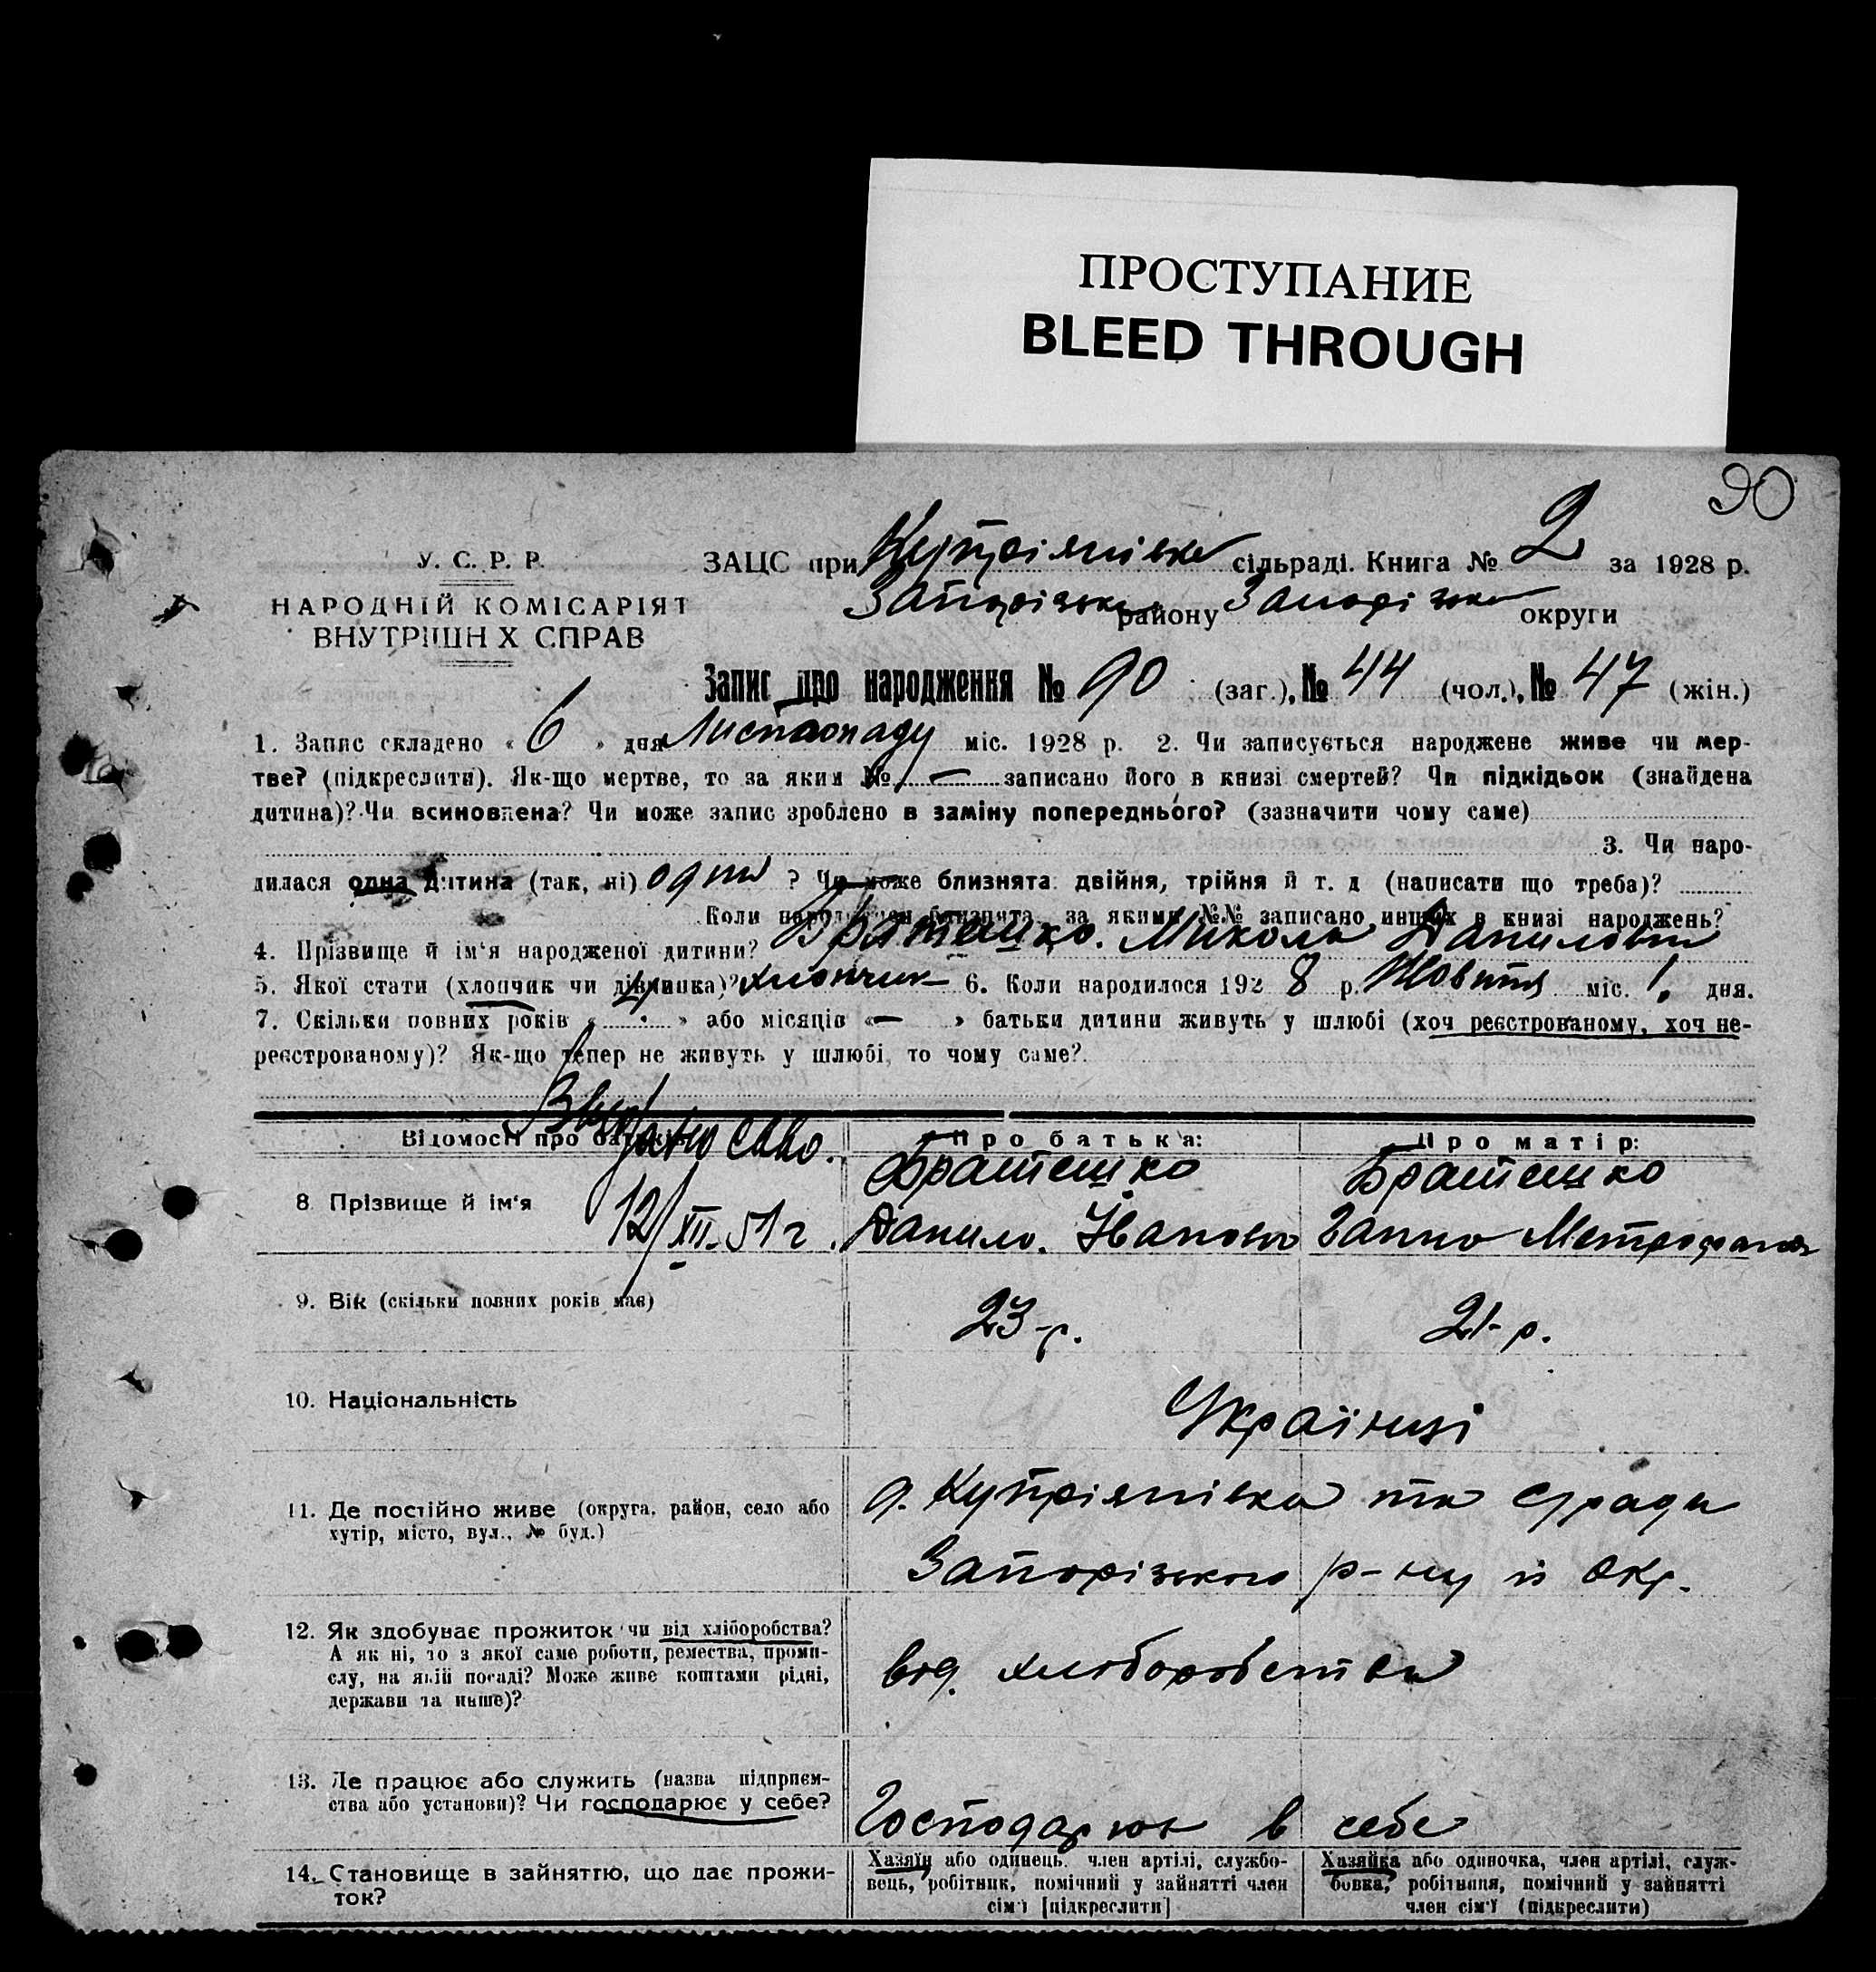 ПРОСТУПАНИЕ
BLEED THROUGH
90
У. С. Р. Р.
НАРОДНІЙ КОМІСАРІЯТ
ВНУТРІШН Х СПРАВ
ЗАЦС при Купріянівка сільраді. Книга № 2 за 1928 р.
Запорізьк району Запорізьк округи
Запис про народження № 90 (заг.), № 44 (чол.), № 47 (жін.)
1. Запис складено « 6 » дня Листопаду міс. 1928 р. 2. Чи записується народжене живе чи мер-
тве? (підкреслити). Як-що мертве, то за яким № — записано його в книзі смертей? Чи підкідьок (знайдена
дитина)? Чи всиновлена? Чи може запис зроблено в заміну попереднього? (зазначити чому саме)
3. Чи наро-
дилася одна дитина (так, ні) одна ? Чи може близнята: двійня, трійня й т. д (написати що треба)?
Коли народжен близнята, за якими №№ записано инших в книзі народжень?
4. Прізвище й ім‘я народженої дитини? Братешко. Микола Данилович
5. Якої стати (хлопчик чи дівчинка)? хлопчик 6. Коли народилося 192 8 р. Жовтня міс. 1. дня.
7. Скільки повних років « » або місяців «— » батьки дитини живуть у шлюбі (хоч реєстрованому, хоч не-
реєстрованому)? Як-що тепер не живуть у шлюбі, то чому саме?
Відомості про батьків
Про батька:
Про матір:
12/XII-51 г.
8 Прізвище й ім‘я
Братешко
Братешко
Данило. Іванов
Ганна
9. Вік (скільки повних років має)
23-р.
21-р.
10. Національність
Українці
11. Де постійно живе (округа, район, село або
хутір, місто, вул., № буд.)
Купріянівка та с/ради
Запорізького р-ну й окр.
12. Як здобуває прожиток чи від хліборобства?
А як ні, то з якої саме роботи, ремества, проми-
слу, на якій посаді? Може живе коштами рідні,
держави та инше)?
від. хліборобства
13. Де працює або служить (назва підприєм-
ства або установи)? Чи господарює у себе?
Господарюю в себе
14. Становище в зайняттю, що дає прожи-
ток?
Хазяїн або одинець, член артілі, службо-
вець, робітник, помічний у зайнятті член
сім‘ї [підкреслити]
Хазяйка або одиночка, член артілі, служ-
бовка, робітниця, помічний у зайнятті
член сім‘ї (підкреслити)